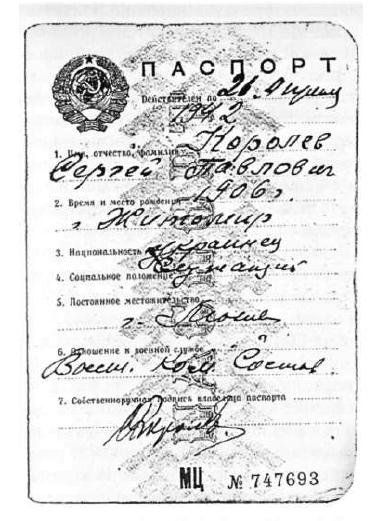 ПАСПОРТ
Действителен по 26. Апреля
1942
Королев
1. Имя, отчество, фамилия
Сергей Павлович
1906 г
2. Время и место рождения
г Житомир
3. Национальность украинец
4. Социальное положение Служащий
5. Постоянное местожительство
г.
6. Отношение к военной службе
Состав
7. Собственноручная подпись владельца паспорта
МЦ № 747693